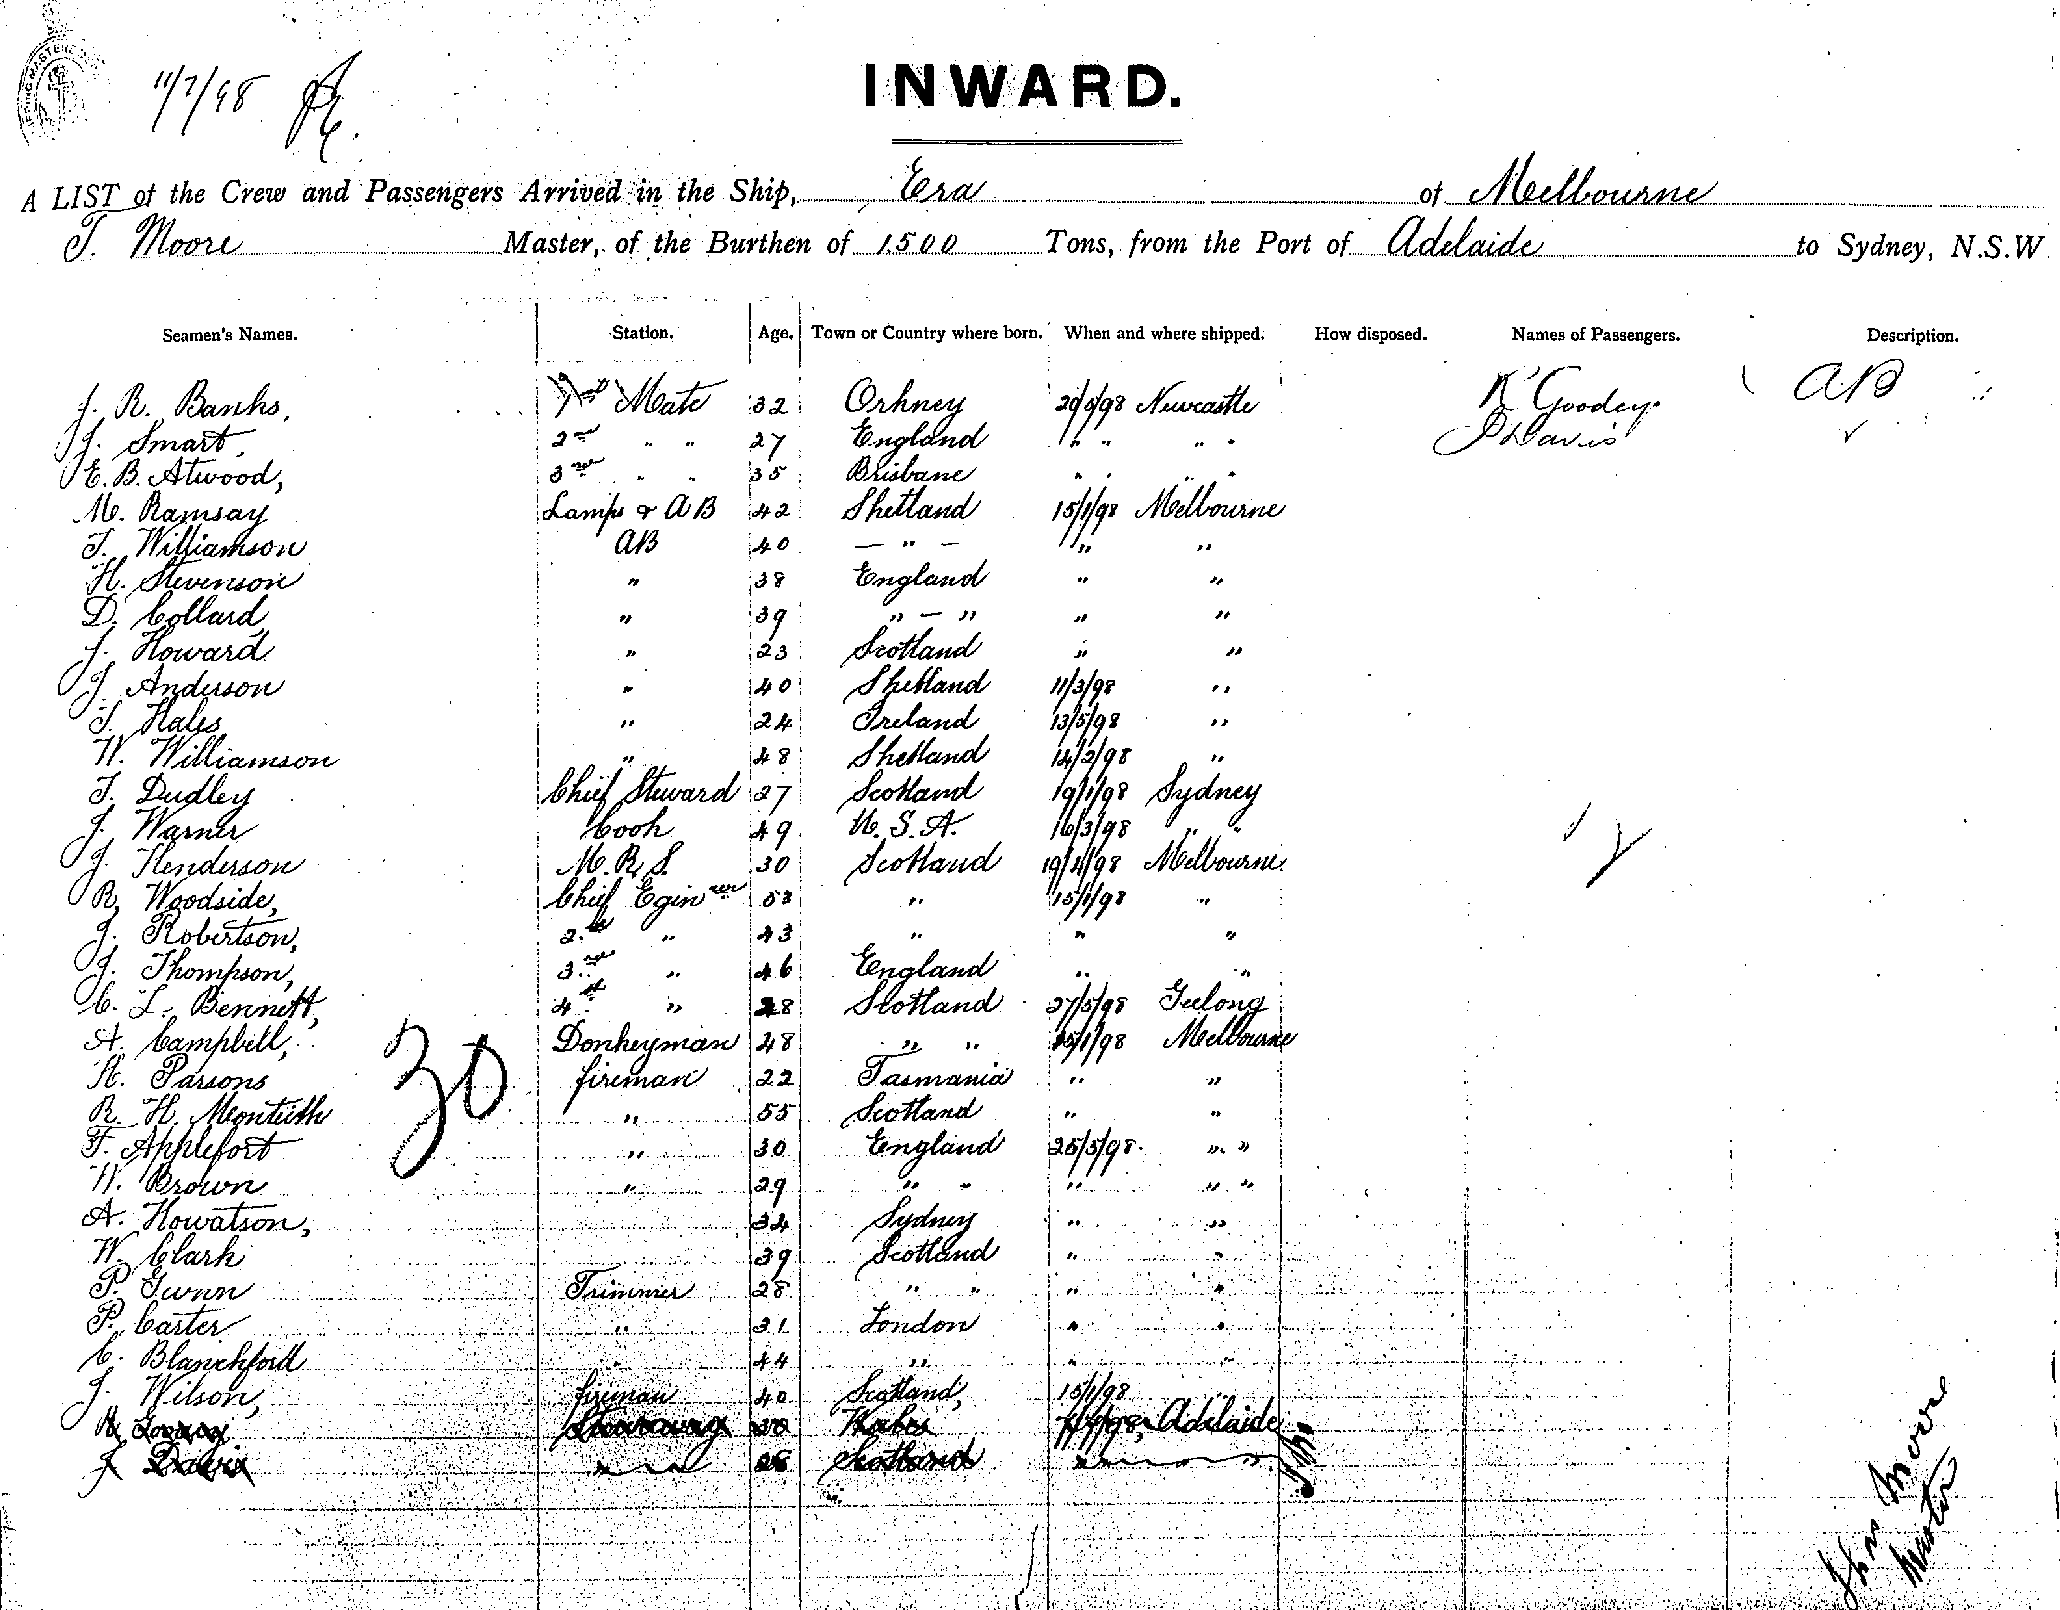 11/7/98
INWARD.
A LIST of the Crew and Passengers Arrived in the Ship, Era of Melbourne
T. Moore Master, of the Burthen of 1500 Tons, from the Port of Adelaide to Sydney, N.S.W
Seamen's Names. Station. Age. Town or Country where born. When and where shipped. How disposed. Names of Passengers. Description.
J. R. Banks, Mate 32 Orkney 29/5/98 Newcastle R Goodey AB
J. Smart, 2nd " " 27 England " " " " J Davis
E. B. Atwood, 3rd " " 35 Brisbane " " " "
M. Ramsay Lamps & AB 42 Shetland 15/1/98 Melbourne
T. Williamson AB 40 — " — " "
H. Stevenson " 38 England " "
D. Collard " 39 " — " " "
J. Howard " 23 Scotland " "
J. Anderson " 40 Shetland 11/3/98 "
T. Hales " 24 Ireland 13/5/98 "
W. Williamson " 48 Shetland 14/2/98 "
T. Dudley Chief Steward 27 Scotland 19/1/98 Sydney
J. Warner Cook 49 U. S. A. 16/3/98 " "
J. Henderson M. R. S. 30 Scotland 19/4/98 Melbourne
R. Woodside, Chief Egineer 53 " 15/1/98 "
J. Robertson, 2nd " 43 " " "
J. Thompson, 3rd " 46 England " "
C. L. Bennett, 4th " 28 Scotland 27/5/98 Geelong
A. Campbell, Donkeyman 48 " " 15/1/98 Melbourne
H. Parsons fireman 22 Tasmania " "
30
R. H. Monteith " 55 Scotland " "
F. Applefort " 30 England 25/5/98 " "
W. Brown " 29 " " " " "
A. Howatson, 34 Sydney " "
W. Clark 39 Scotland " "
P. Gunn Trimmer 28 " " " "
P. Carter " 31 London " "
C. Blanchford " 44 " " "
J. Wilson, fireman 40 Scotland, 15/1/98
Adelaide
J Davis Scotland
John Moore
Master